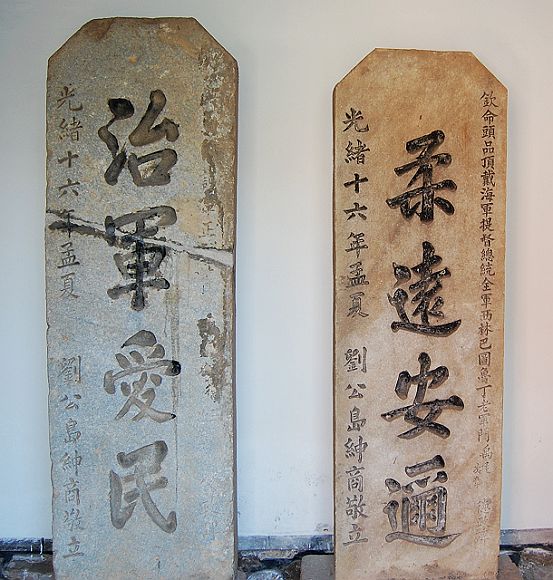 欽命頭品頂戴海軍提督總統全軍西林巴圖魯丁老軍門禹廷
柔遠安邇
光緒十六年孟夏 劉公島紳商敬立
治軍愛民
光緒十六年孟夏 劉公島紳商敬立